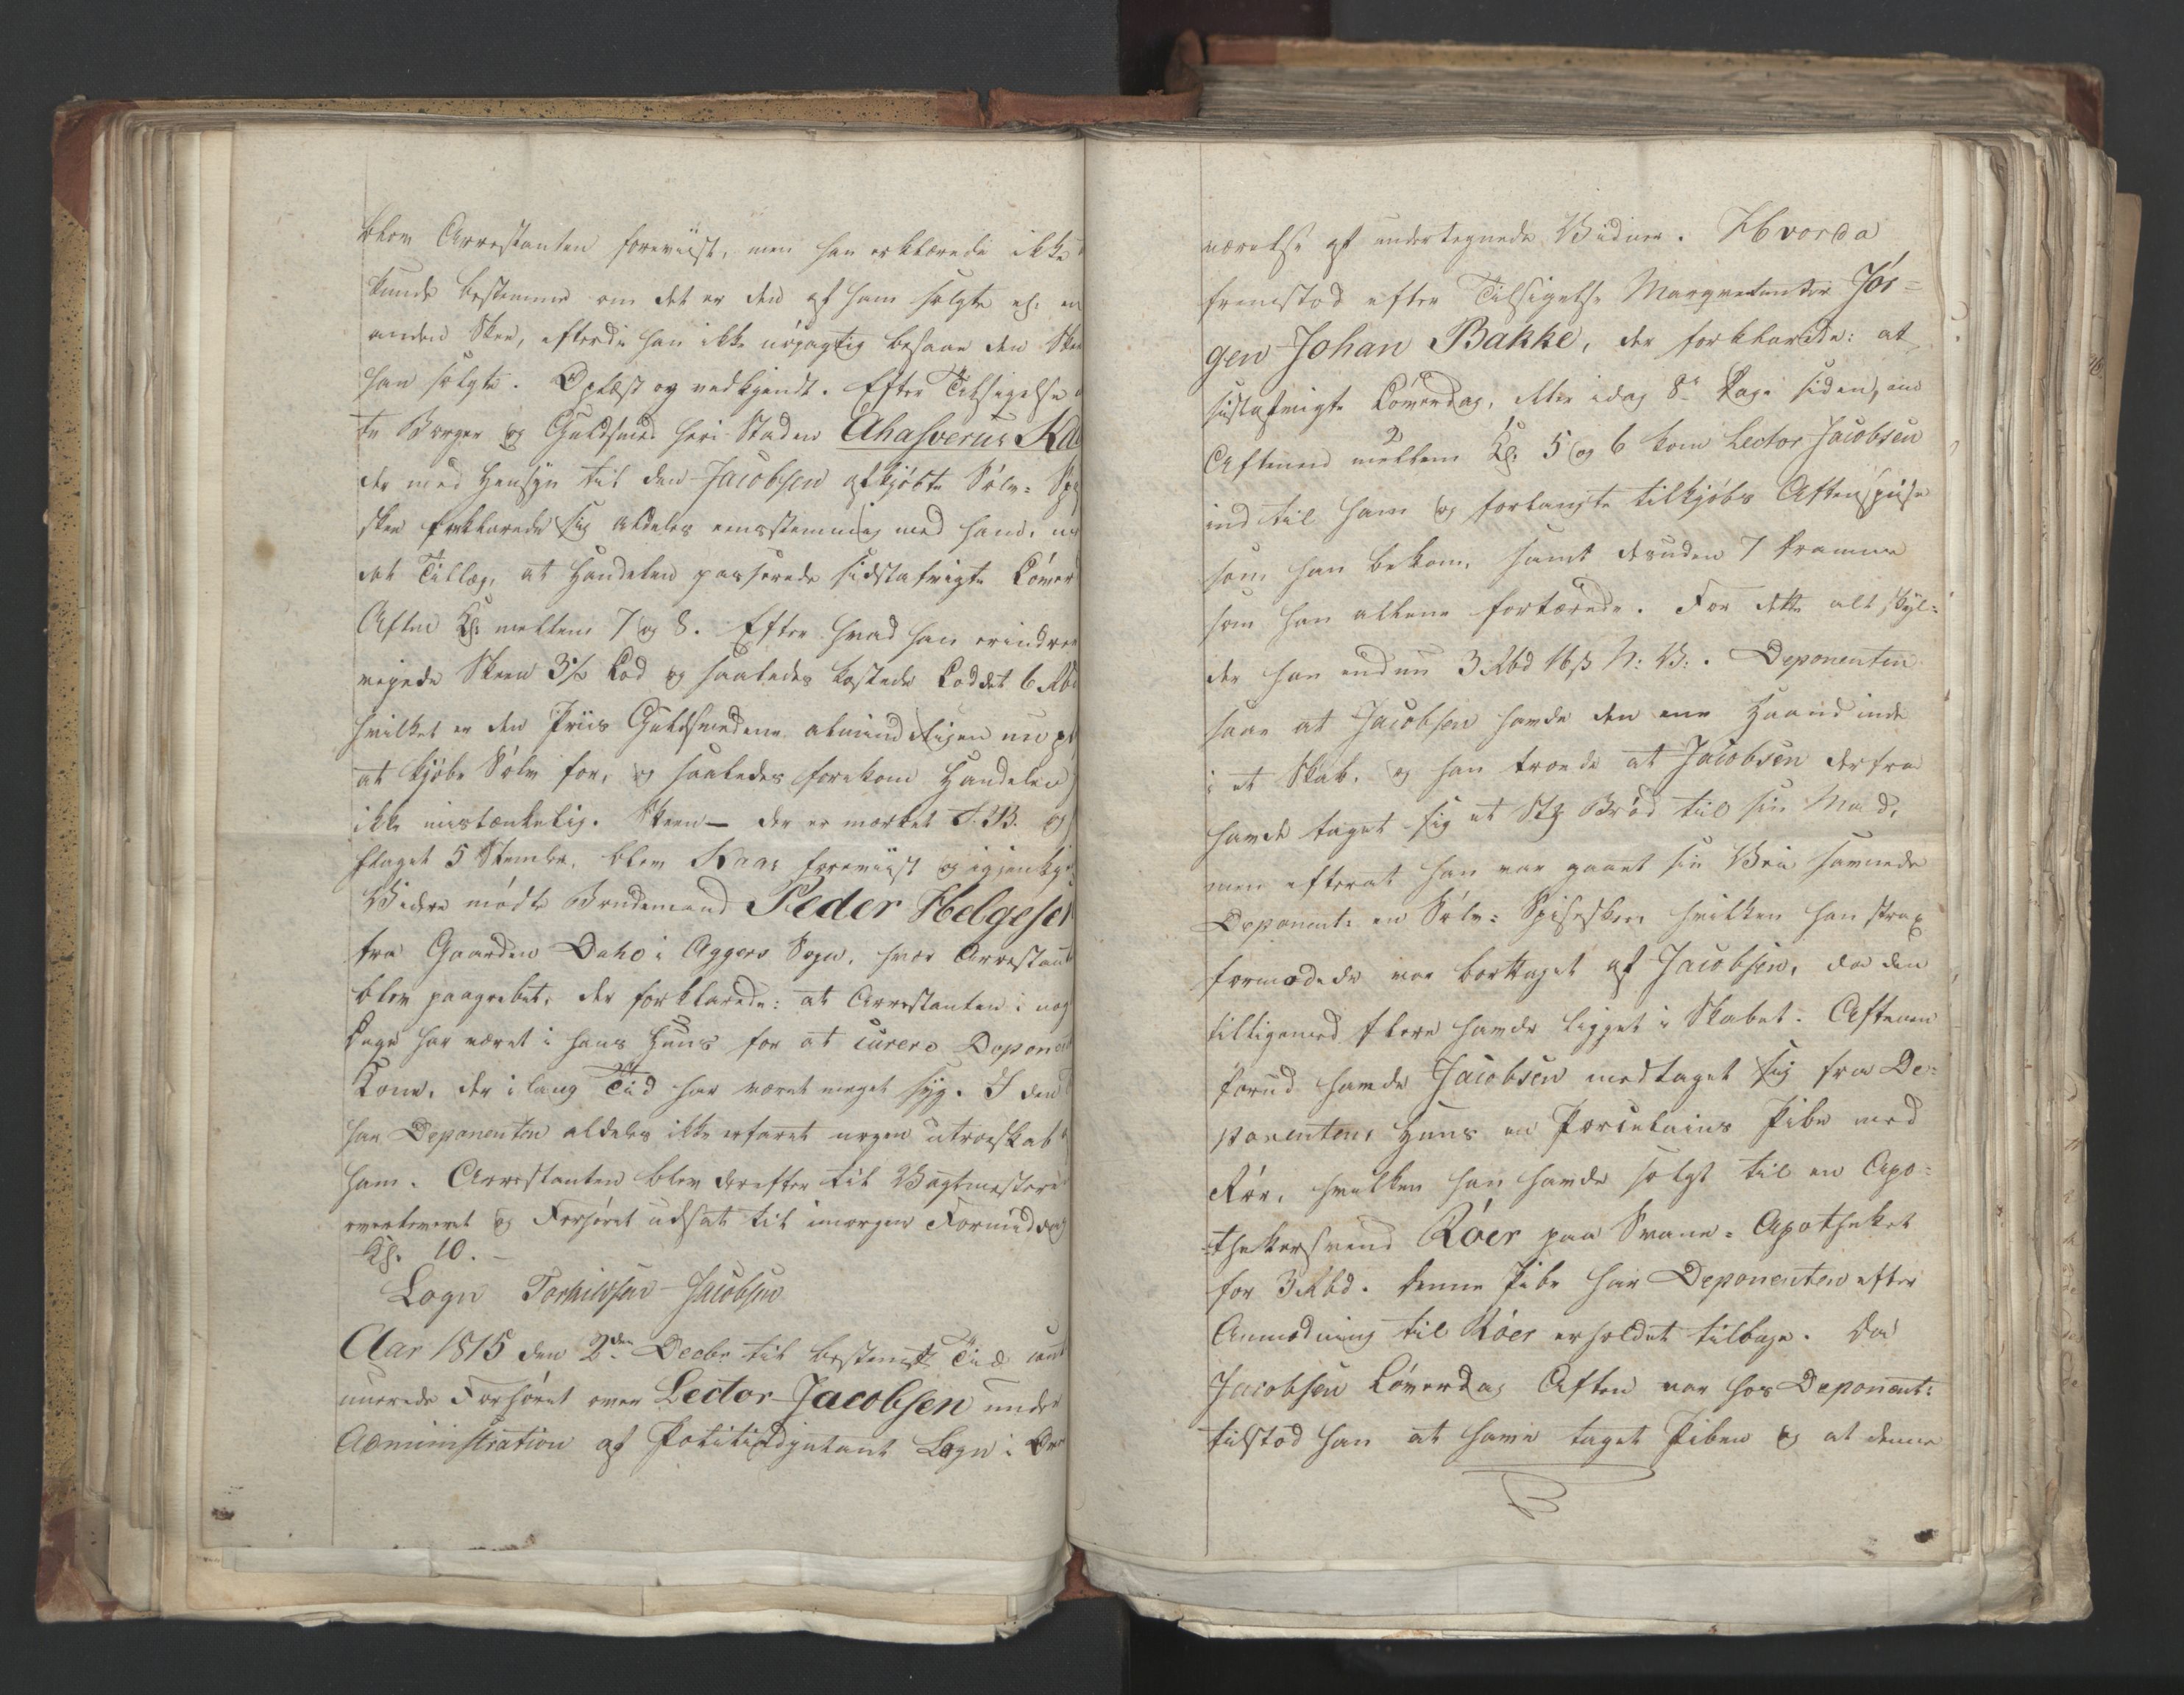 blev Arrestanten foreviist, men han erklærede ikke
kunde bestemme om det er den af ham solgte el: en
anden Skee, efterdi han ikke nøyagtig besaae den Skee
han solgte. Oplæst og vedkjendt. Efter Tilsigelse
te Borger og Guldsmed heri Staden Ahasverus Ka
der med Hensyn til den Jacobsen afkjøbte Sølv=
skee forklarede sig aldeles eensstemmig med ham, 
det Tillæg, at Handelen passerede sidstafvigte Løver
Aften Kl: mellem 7 og 8. Efter hvad han erindrer
veyede Skeen 3½ Lod og saaledes kostede Loddet 6 Rbd
hvilket er den Priis Guldsmedene almindeligen nu pl
at kjøbe Sølv for, og saaledes forekom Handelen
ikke mistænkelig. Skeen – der er mærket B. og
slaget 5 Stemler, blev Kaas foreviist og igjenkj
Videre mødte Brudemand Peder Helgesen
fra Gaarden Oaho i Aggers Sogn, hvor Arrestant
blev paagrebet, der forklarede: at Arrestanten i nog
Dage har været i hans Huus for at curere Deponent
Kone, der i lang Tid har været meget syg. I den
har Deponenten aldeles ikke erfaret nogen utroeskab
ham. Arrestanten blev derefter til Vagtmesteren
overleveret og Forhøret udsat til imorgen Formiddag
Kl. 10. –
Logn Torkildsen Jacobsen
Aar 1815 den 2den Decbr til bestemt Tid cont
nuerede Forhøret over Lector Jacobsen under
Administration af Politieadjutant Logn i Over
værelse af undertegnede Vidner. Hvorda
fremstod efter Tilsigelse Marqvetenter Jør=
gen Johan Bakke, der forklarede: at
sidstafvigte Løverdag, eller idag 8te Dage siden, om
Aftenen mellem Kl: 5 og 6 kom Lector Jacobsen
ind til ham og forlangte tilkjøbs Aftenspise
som han bekom, samt desuden 7 Dramme
som han allene fortærede. For dette alt skyl=
der han endnu 3 Rbd 16 ß N: V:. Deponenten
saae at Jacobsen havde den ene Haand inde
i et Skab, og han troede at Jacobsen derfra
havde taget sig et Stk Brød til sin Mad,
men efterat han var gaaet sin Vei savnede
Deponent: en Sølv= Spiseskee, hvilken han strax
formodede var borttaget af Jacobsen, da den
tilligemed flere havde ligget i Skabet. Aftenen
forud havde Jacobsen medtaget sig fra De=
ponentens Huus en Porcelains Pibe med
Rør, hvilken han havde solgt til en Apo=
=thekersvend Röer paa Svane= Apotheket
for 3 Rbd. Denne Pibe har Deponenten efter
Anmodning til Röer erholdet tilbage. Da
Jacobsen Løverdag Aften var hos Deponent:
tilstod han at have taget Piben og at denne